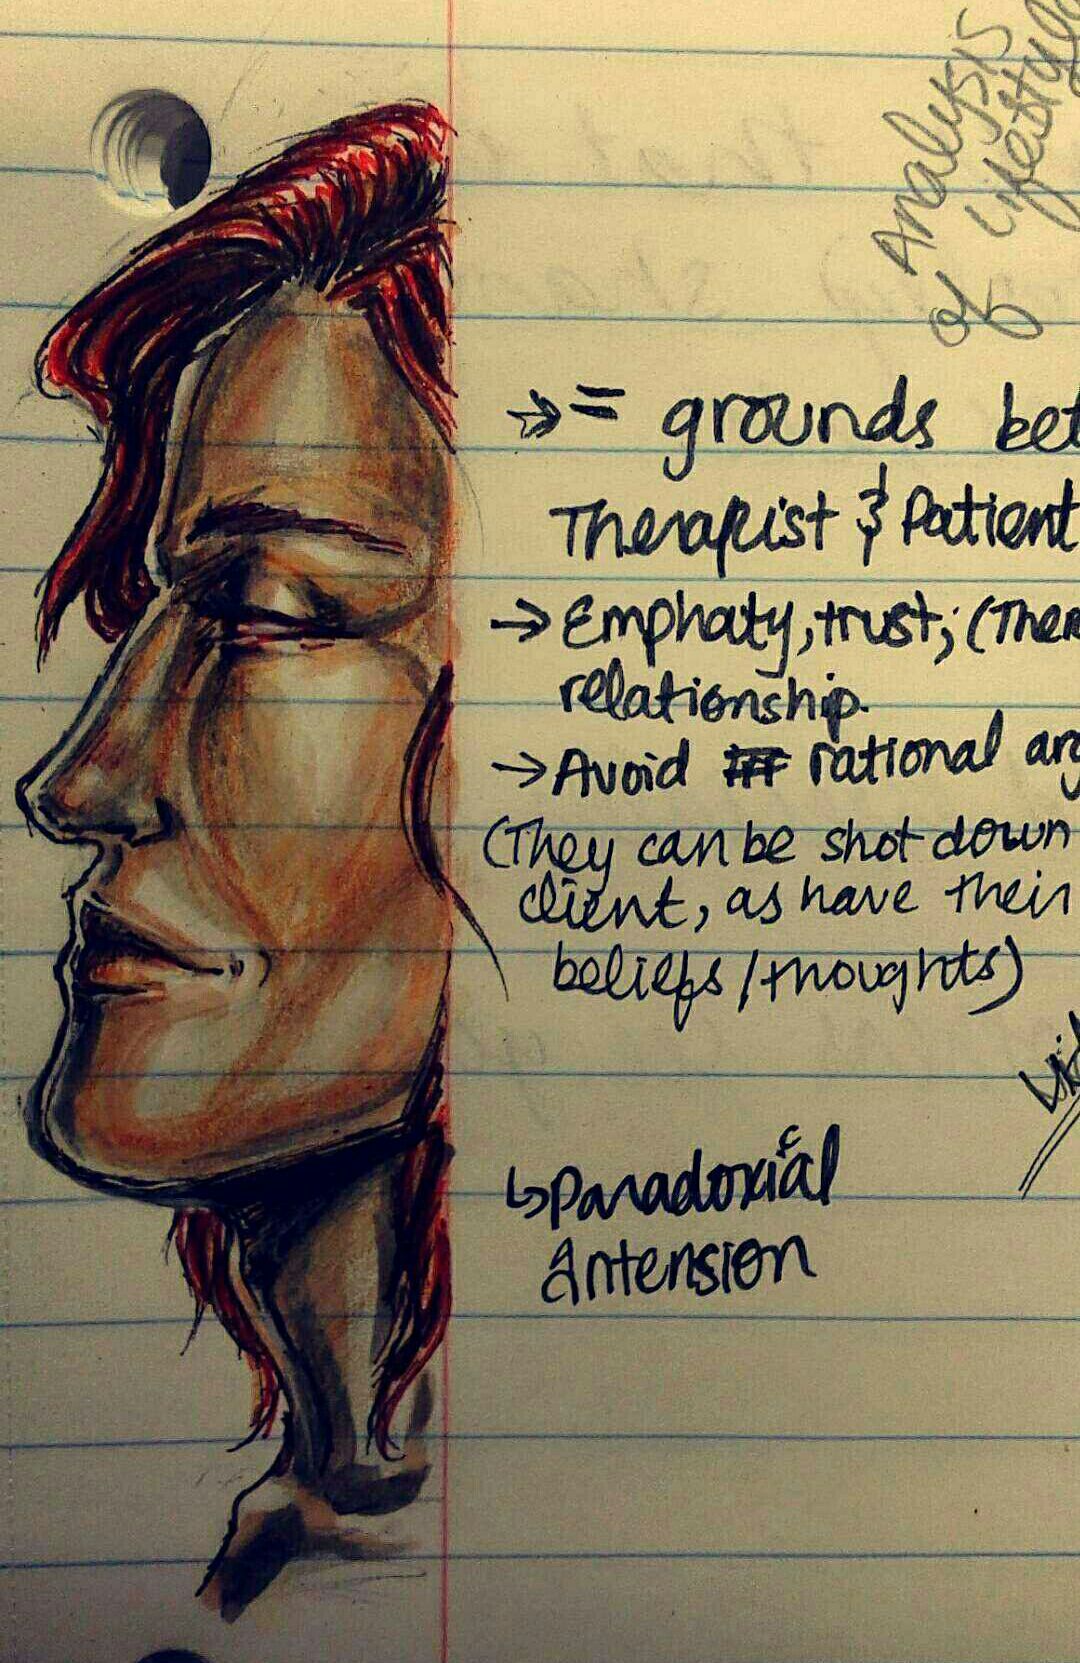 Analysis
of Lifestyle
→ = grounds bet
Therapist & Patient
→ Emphaty, trust; (Ther
relationship.
→ Avoid rational arg
(They can be shot down
client, as have their
beliefs / thoughts)
↳ Paradoxical
Antension